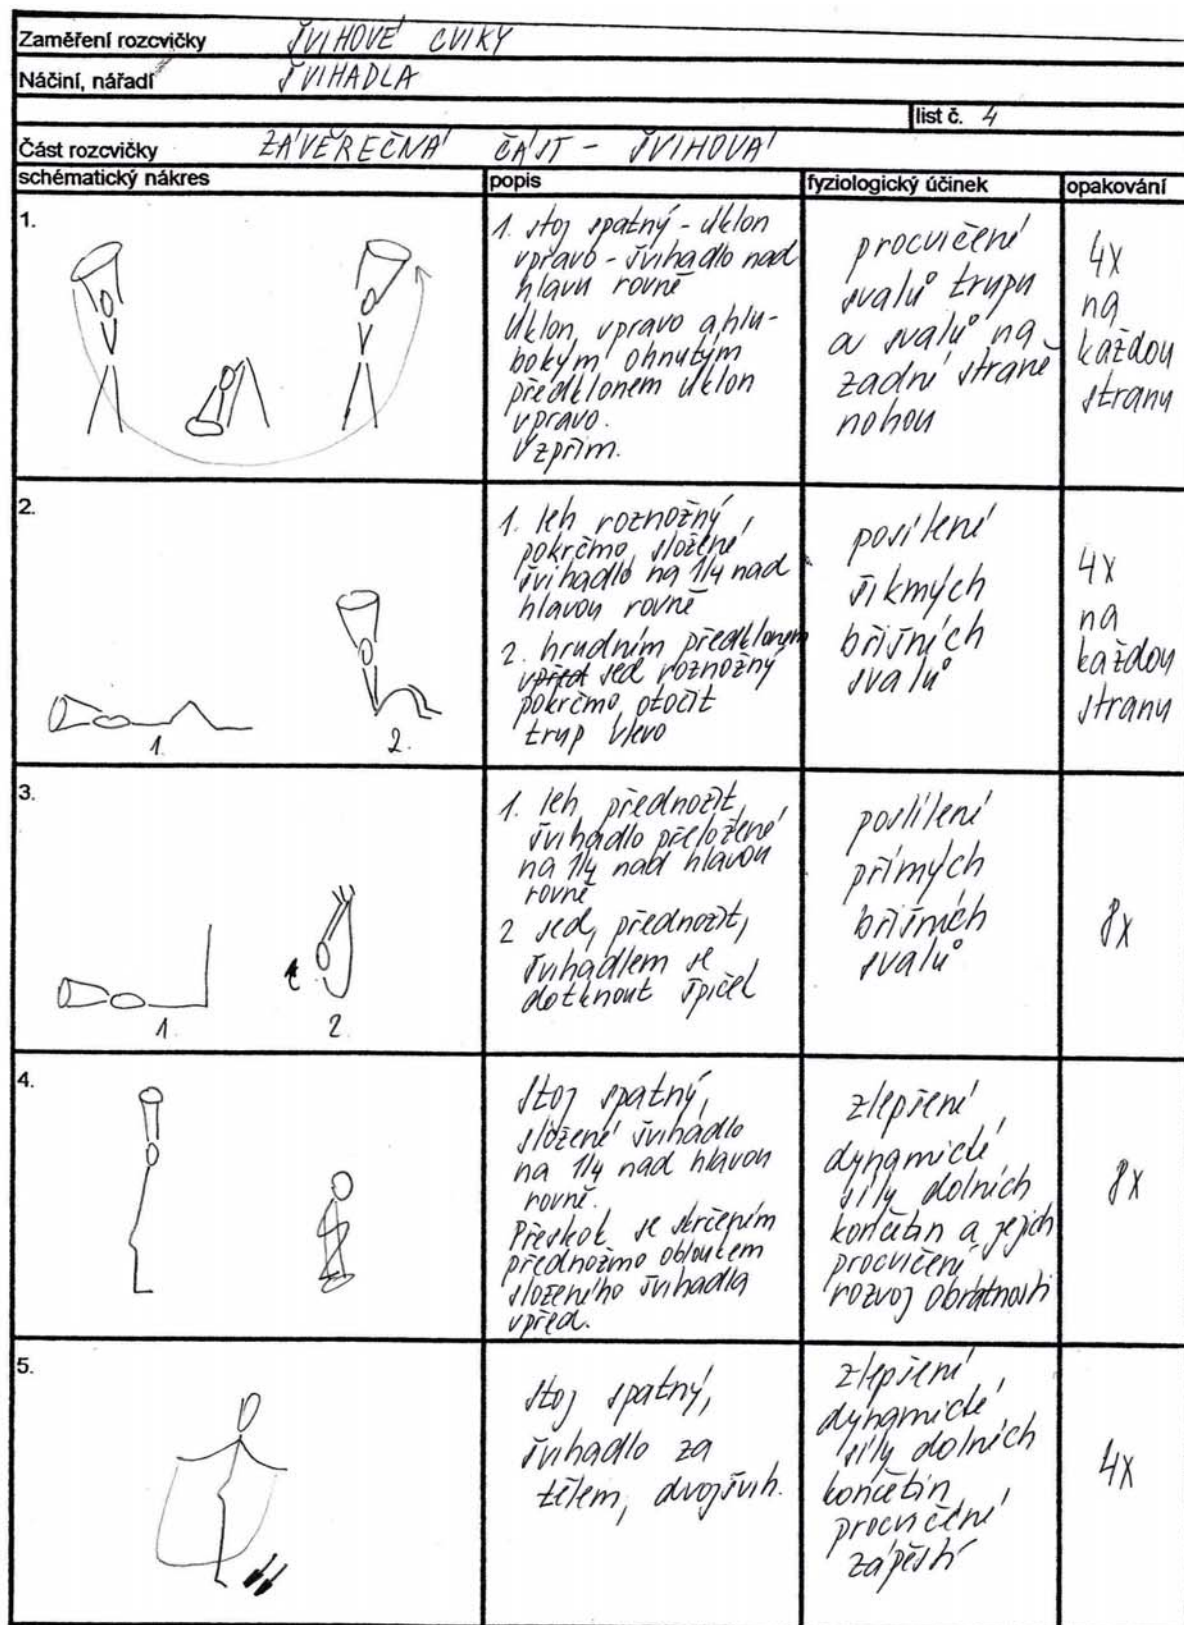 Zaměření rozcvičky ŠVIHOVÉ CVIKY
Náčiní, nářadí ŠVIHADLA
list č. 4
Část rozcvičky ZÁVĚREČNÁ ČÁST - ŠVIHOVÁ
schématický nákres popis fyziologický účinek opakování
1.
1. stoj spatný - úklon
vpravo - švihadlo nad
hlavu rovně
Úklon vpravo a hlu-
bokým ohnutým
předklonem úklon
vpravo.
Vzpřim.
procvičení
svalů trupu
a svalů na
zadní straně
nohou
4x
na
každou
stranu
2.
1. 2.
1. leh roznožný
pokrčmo, složené
švihadlo na 1/4 nad
hlavou rovně
2. hrudním předklonem
vpřed sed roznožný
pokrčmo, otočit
trup vlevo
posílení
šikmých
břišních
svalů
4x
na
každou
stranu
3.
1. 2.
1. leh přednožit,
švihadlo přeložené
na 1/4 nad hlavou
rovně
2 sed, přednožit,
švihadlem se
dotknout špiček
poslílení
přímých
břišních
svalů
8x
4.
stoj spatný,
složené švihadlo
na 1/4 nad hlavou
rovně.
Přeskok se skrčením
přednožmo obloukem
složeného švihadla
vpřed.
zlepšení
dynamické
síly dolních
končetin a jejich
procvičení,
rozvoj obratnosti
8x
5.
stoj spatný,
švihadlo za
tělem, dvojšvih.
zlepšení
dynamické
síly dolních
končetin,
procvičení
zápěstí
4x